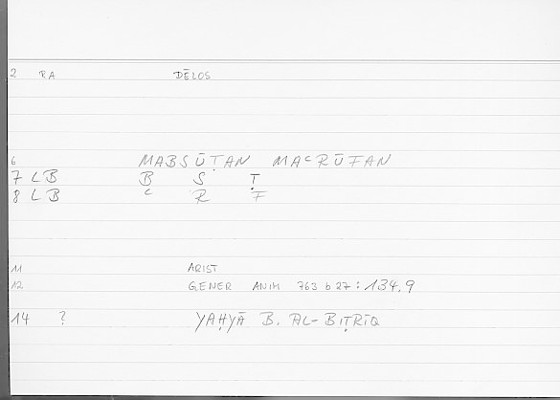 2 RA DĒLOS
6 MABSŪṬAN MAʿRŪFAN
7 LB B S Ṭ
8 LB ʿ R F
11 ARIST
12 GENER ANIM 763 b 27 : 134.9
14 ? YAḤYĀ B. AL-BIṬRĪQ